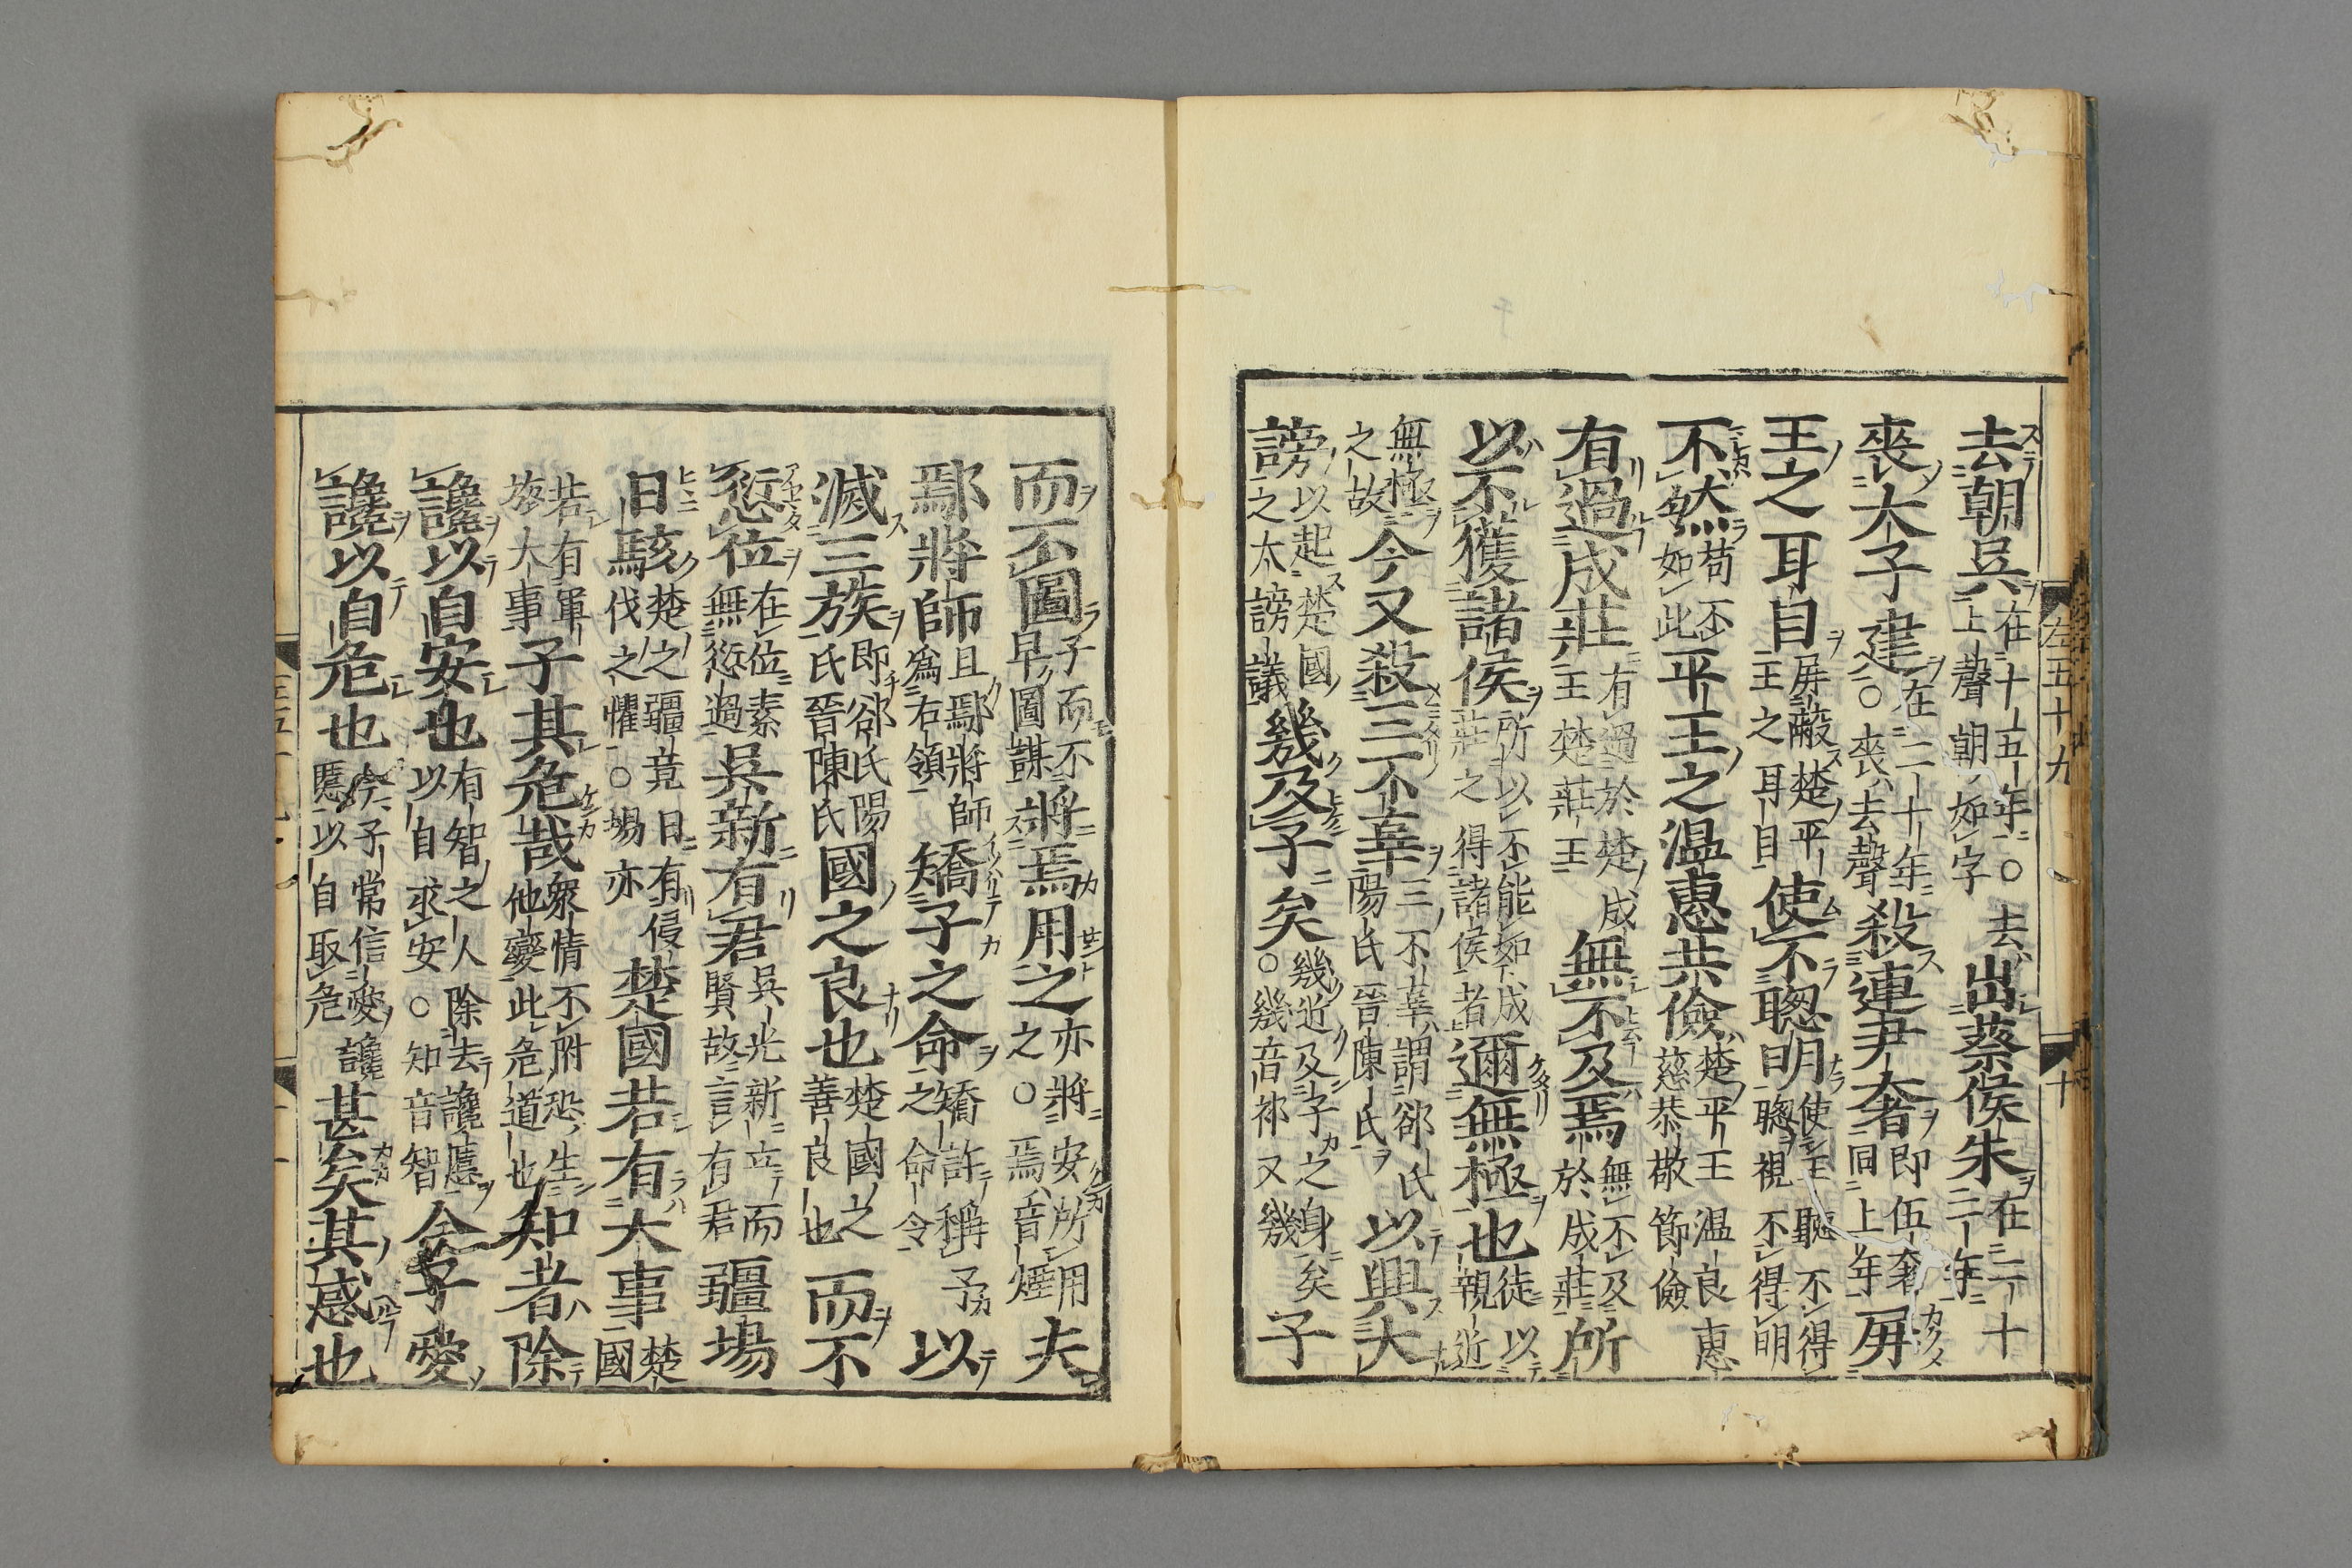 左五十九　十
去朝吳在十五年○去上聲朝如字出蔡侯朱在二十一年
喪大子建在二十年○喪去聲殺連尹奢即伍奢同上年屏
王之耳目屏蔽楚平王之耳目使不聰明使王聽不得聰視不得明
不然苟不如此平王之温惠共儉楚平王温良惠慈恭敬節儉
有過成莊有過於楚成王楚莊王無不及焉無不及於成莊所
以不獲諸侯所以不能如成莊之得諸侯者邇無極也徒以親近
無極之故今又殺三不辜三不辜謂郤氏陽氏晉陳氏以興大
謗以起楚國之大謗議幾及子矣幾近及子之身矣○幾音祁又幾子
而不圖子而不早圖謀將焉用之亦將安所用之○焉音煙夫
鄢將師且鄢將師爲右領矯子之命矯許稱子之命令以
滅三族即郤氏陽氏晉陳氏國之良也楚國之善良也而不
愆位在位素無愆過吳新有君吳光新立而賢故言有君疆場
日駭楚之疆竟日有侵伐之懼○場亦楚國若有大事楚國
若有軍旅大事子其危哉衆情不附恐生他變此危道也知者除
讒以自安也有智之人除去讒慝以自求安○知音智今子愛
讒以自危也今子常信愛讒慝以自取危甚矣其惑也